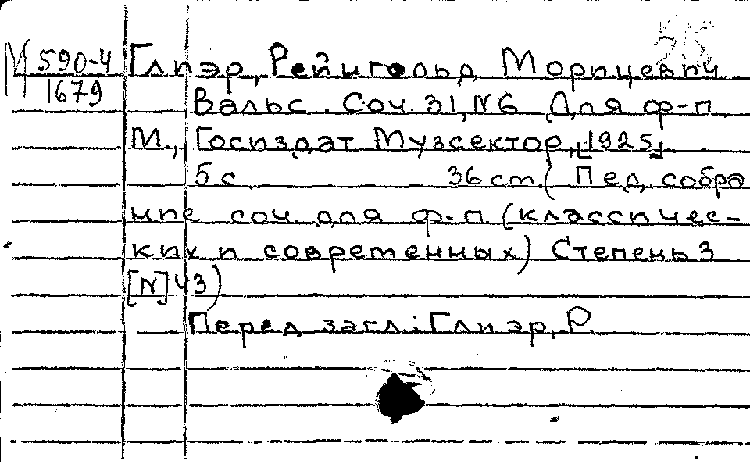 М 590-4
1679
Глиэр, Рейнгольд Морицевич
Вальс. Соч. 31, №6 Для ф-п
М., Госиздат Музсектор, [1925].
5 с 36 cm. (Пед. собра
ние соч. для ф.-п (классичес-
ких и современных) Степень 3
[N] 43)
Перед загл.: Глиэр, Р.